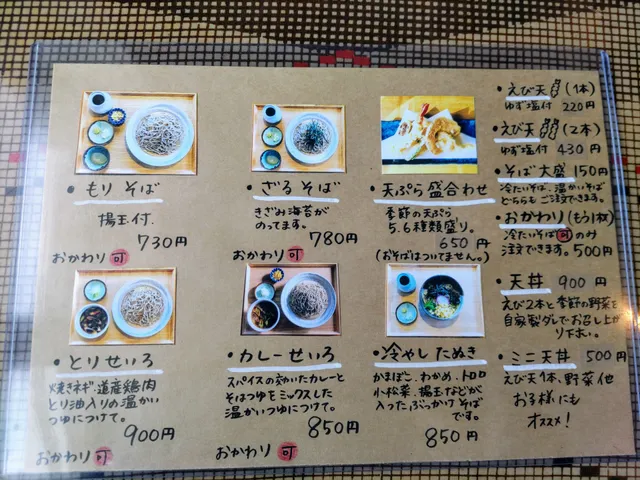 ・もりそば
揚玉付.
730円
おかわり 可
・ざるそば
きざみ海苔が
のってます。
780円
おかわり 可
・天ぷら盛合わせ
季節の天ぷら
5,6種類盛り。
650円
(おそばはついてません。)
・とりせいろ
焼きネギ、道産鶏肉
とり油入りの温かい
つゆにつけて。
900円
おかわり 可
・カレーせいろ
スパイスの効いたカレーと
そばつゆをミックスした
温かいつゆにつけて。
850円
おかわり 可
・冷やしたぬき
かまぼこ、わかめ、トロロ
小松菜、揚玉などが
入った、ぶっかけそば
です。
850円
・えび天 (1本)
ゆず塩付 220円
・えび天 (2本)
ゆず塩付 430円
・そば大盛 150円
冷たいそば、温かいそば
どちらもご注文できます。
・おかわり(もう1枚)
冷たいそば可のみ
注文できます。500円
・天丼 900円
えび2本と季節の野菜を
自家製ダレでお召し上が
り下さい。
・ミニ天丼 500円
えび天1本、野菜他
お子様にも
オススメ!